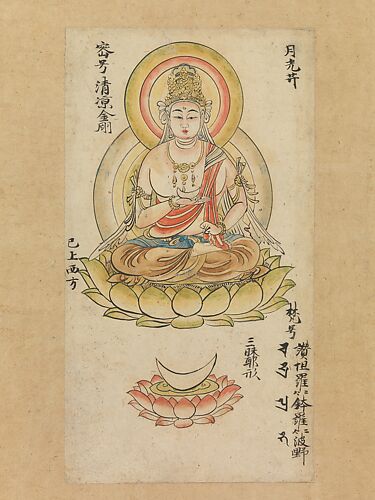 月光菩
密号清凉金剛
已上西方
三昧耶形
梵号
讃怛羅二合鉢羅二合波野